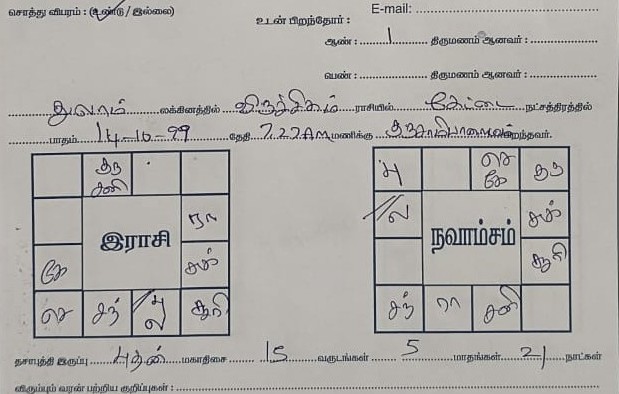 சொத்து விபரம் : (உண்டு / இல்லை)
E-mail:
உடன் பிறந்தோர் :
ஆண் : 1 திருமணம் ஆனவர் :
பெண் : திருமணம் ஆனவர் :
துலாம் லக்கினத்தில் விருச்சிகம் ராசியில் கேட்டை நட்சத்திரத்தில்
பாதம் 14-10-99 தேதி 7.27AM மணிக்கு பிறந்தவர்.
குரு சனி
ரா
இராசி
கே சுக்
செ சந் பு ல சூரி
பு செ கே குரு
ல சுக்
நவாம்சம்
சூரி
சந் ரா சனி
தசாபுத்தி இருப்பு புதன் மகாதிசை 15 வருடங்கள் 5 மாதங்கள் 21 நாட்கள்
விரும்பும் வரன் பற்றிய குறிப்புகள் :